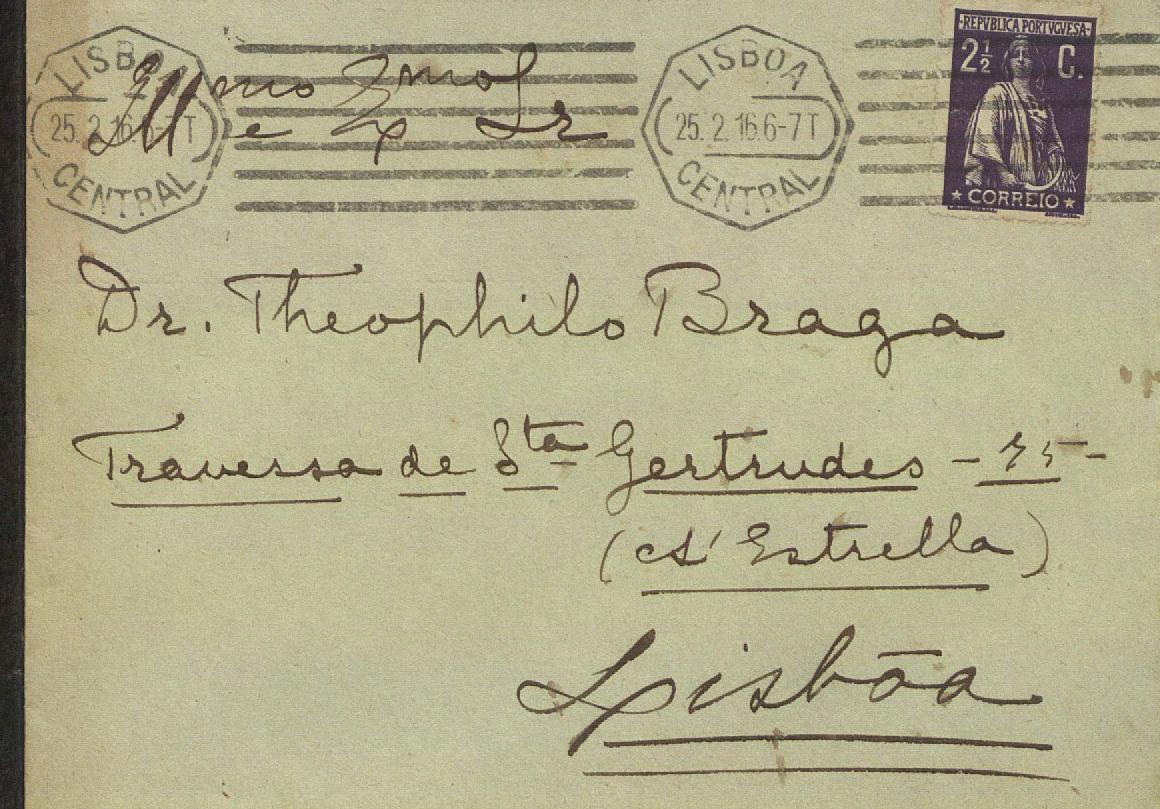 LISBOA
25.2.16.6-7T
CENTRAL
LISBOA
25.2.16.6-7T
CENTRAL
REPVBLICA PORTVGVESA
2½ C.
CORREIO
Illmo e Exmo Sr
Dr. Theophilo Braga
Travessa de Sta Gertrudes - 75 -
(á Estrella)
Lisbõa